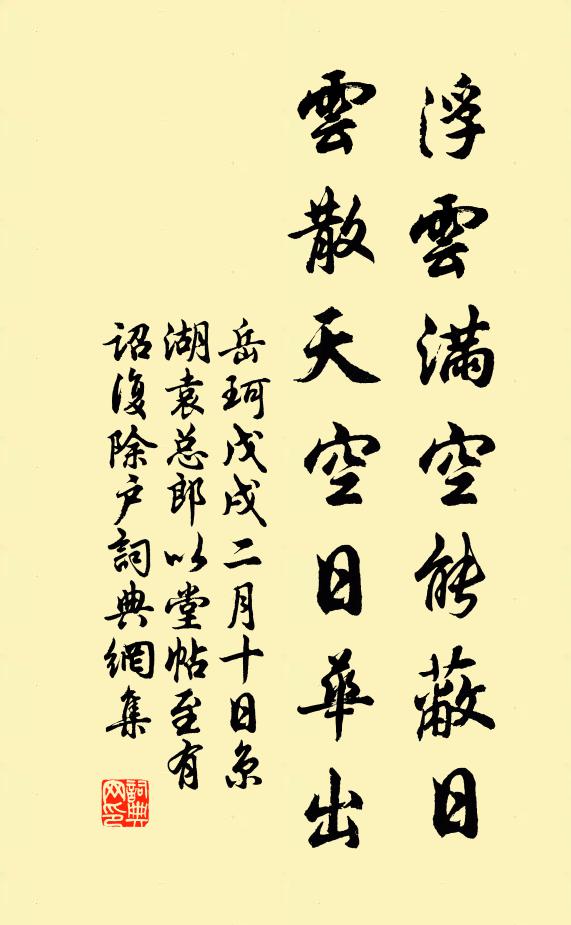 浮雲滿空能蔽日
雲散天空日華出
岳珂戊戌二月十日京
湖袁总郎以堂帖至有
詔復除户詞典網集
詞典网印